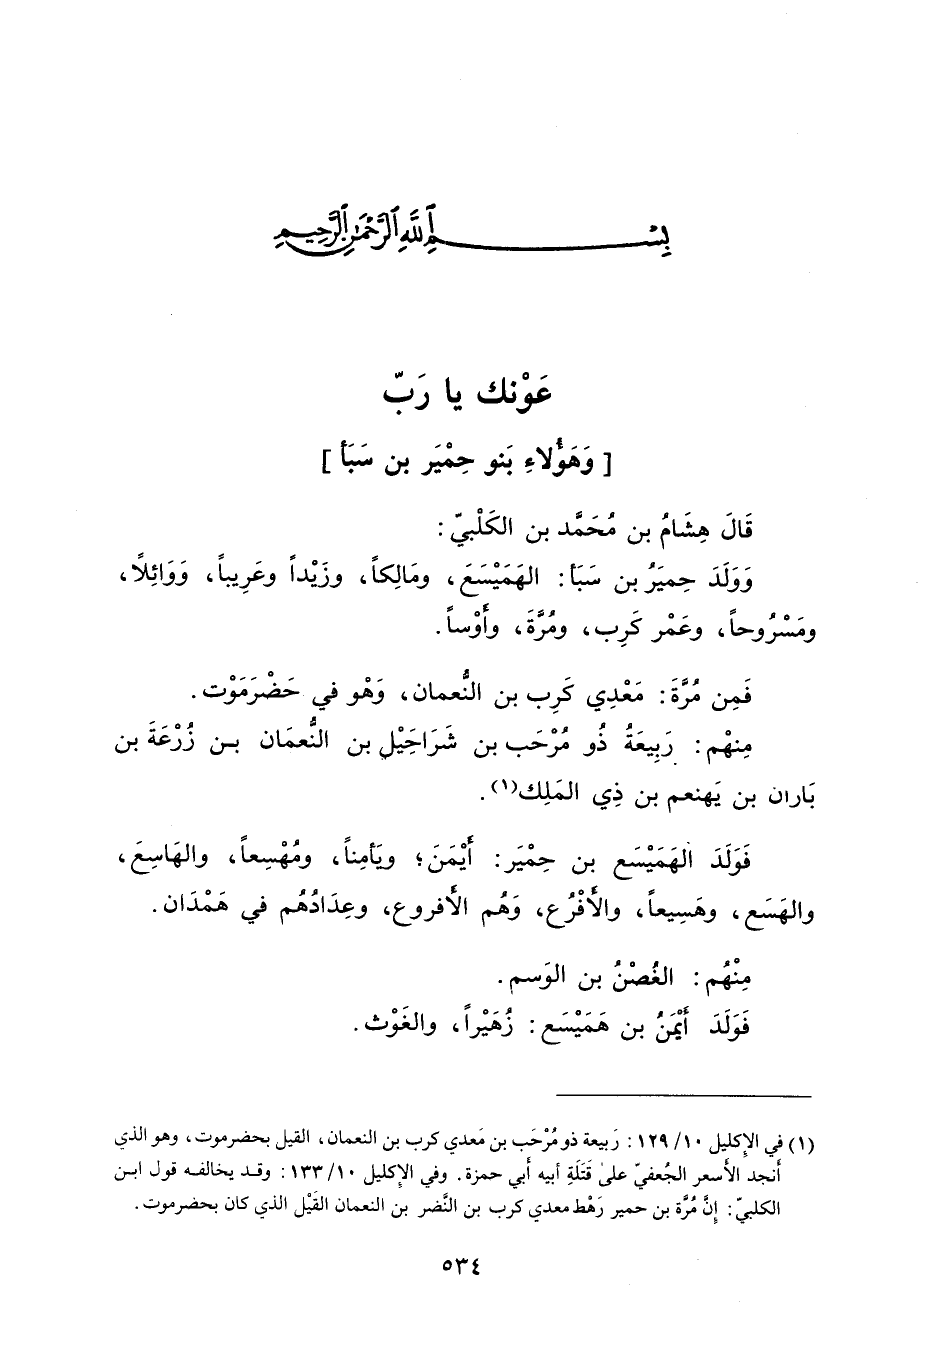 بِسْمِ اللَّهِ الرَّحْمَٰنِ الرَّحِيمِ
عَوْنك يا رَبّ
[ وَهَؤُلاءِ بَنو حِمْيَر بن سَبَأ ]
قَالَ هِشَامُ بن مُحَمَّد بن الكَلْبيّ :
وَوَلَدَ حِميَرُ بن سَبَأ : الهَمَيْسَعَ، ومَالِكاً، وزَيْداً وعَرِيباً، وَوَائِلًا،
ومَسْرُوحاً، وعَمْر كَرِب، ومُرَّةَ، وأَوْساً.
فَمِن مُرَّةَ : مَعْدِي كَرِب بن النُّعمان، وَهْو في حَضْرَمَوْت .
مِنهْم : رَبِيعَةُ ذُو مُرْحَب بن شَرَاحَيْل بن النُّعمَان بـن زُرْعَةَ بن
بَاران بن يَهنعم بن ذِي المَلِك(١) .
فَوَلَدَ الهَمَيْسَع بن حِمْيَر : أَيْمَنَ؛ ويَأمِناً، ومُهْسِعاً، والهَاسِعَ،
والهَسَع، وهَسِيعاً، والأَفْرُع، وَهُم الأفروع، وعِدَادُهُم في هَمْدَان.
مِنْهُم : الغُصْنُ بن الوَسم .
فَوَلَدَ أَيْمَنُ بن هَمَيْسَع : زُهَيْراً، والغَوْث .
(١) في الإكليل ١٠/ ١٢٩ : رَبيعة ذو مُرْحَب بن مَعدي كرب بن النعمان، القيل بحضرموت، وهو الذي
أنجد الأسعر الجُعفيّ على قَتَلَةِ أبيه أبي حمزة. وفي الإكليل ١٠/ ١٣٣ : وقـد يخالفـه قول ابـن
الكلبيّ : إنَّ مُرَّة بن حمير رَهْط معدي كرب بن النَّضر بن النعمان القَيْل الذي كان بحضرموت .
٥٣٤